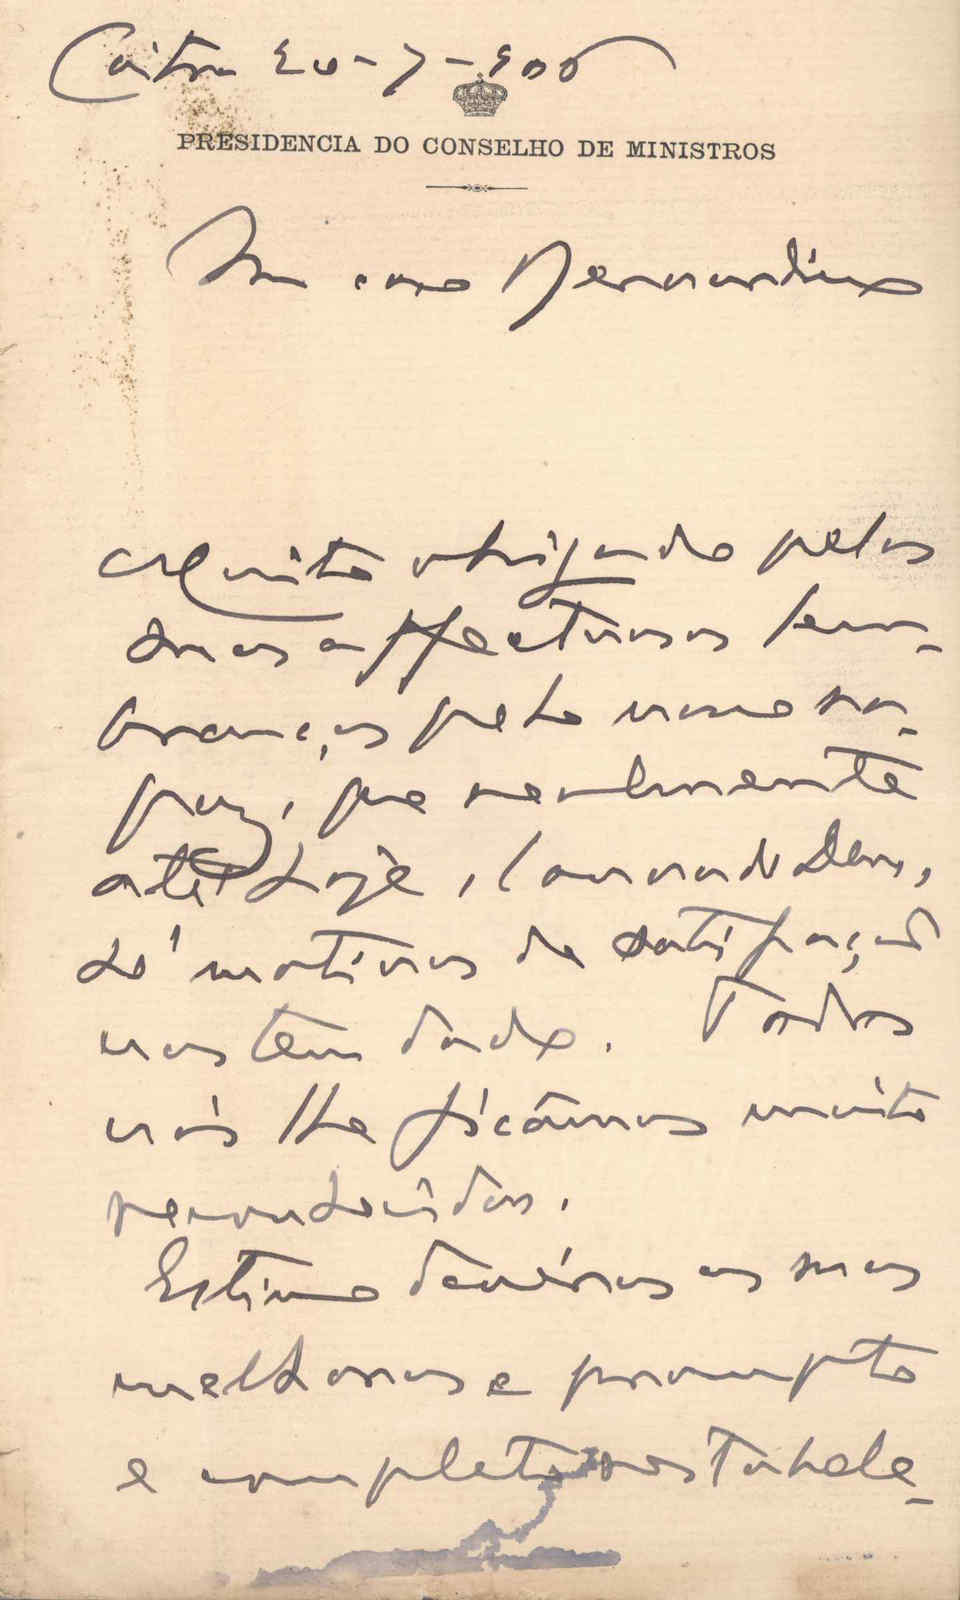 20-7-906
PRESIDENCIA DO CONSELHO DE MINISTROS
Meu caro Bernardino
Muito obrigado pelas
suas affectuosas lem-
branças pelo nosso ra-
paz, que realmente
até hoje, louvado Deus,
só motivos de satisfação
nos tem dado. Todos
nós lhe ficâmos muito
reconhecidos.
Estimo devéras as suas
melhoras e prompto
e completo restabele-